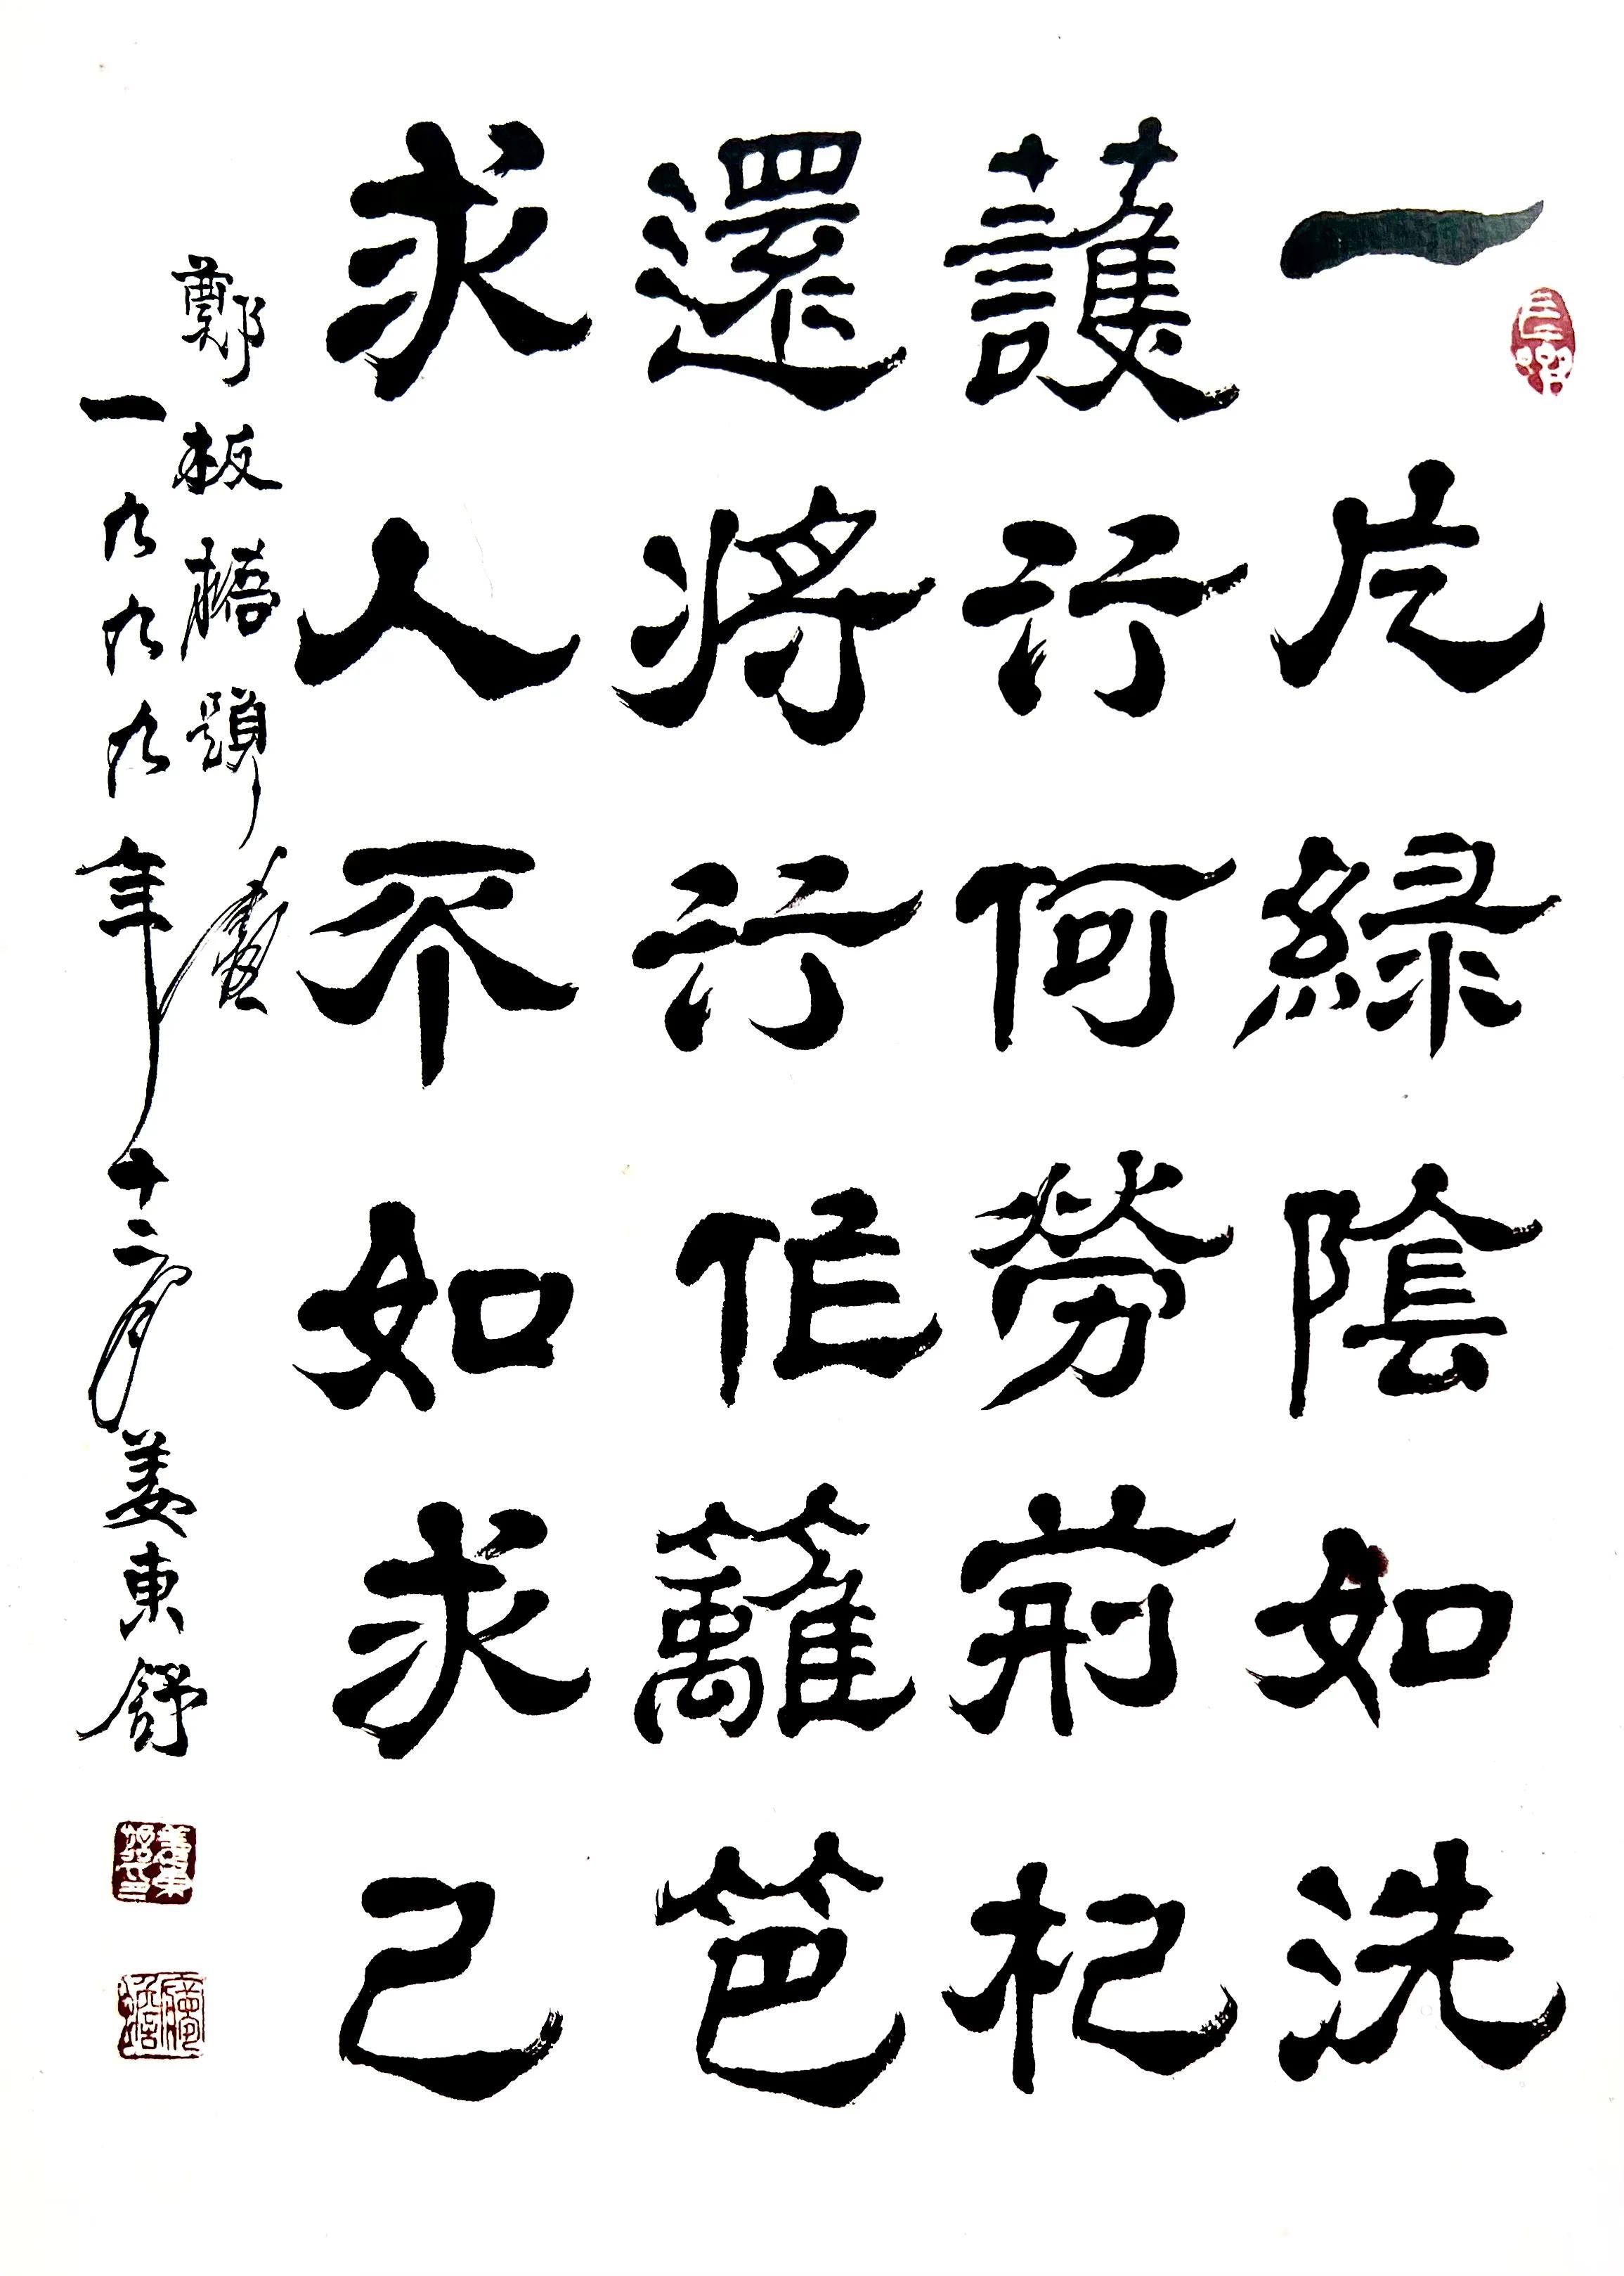 一片綠陰如洗
護竹何勞荊杞
還將竹作籬笆
求人不如求己
鄭板橋題畫
一九九九年十二月姜東舒